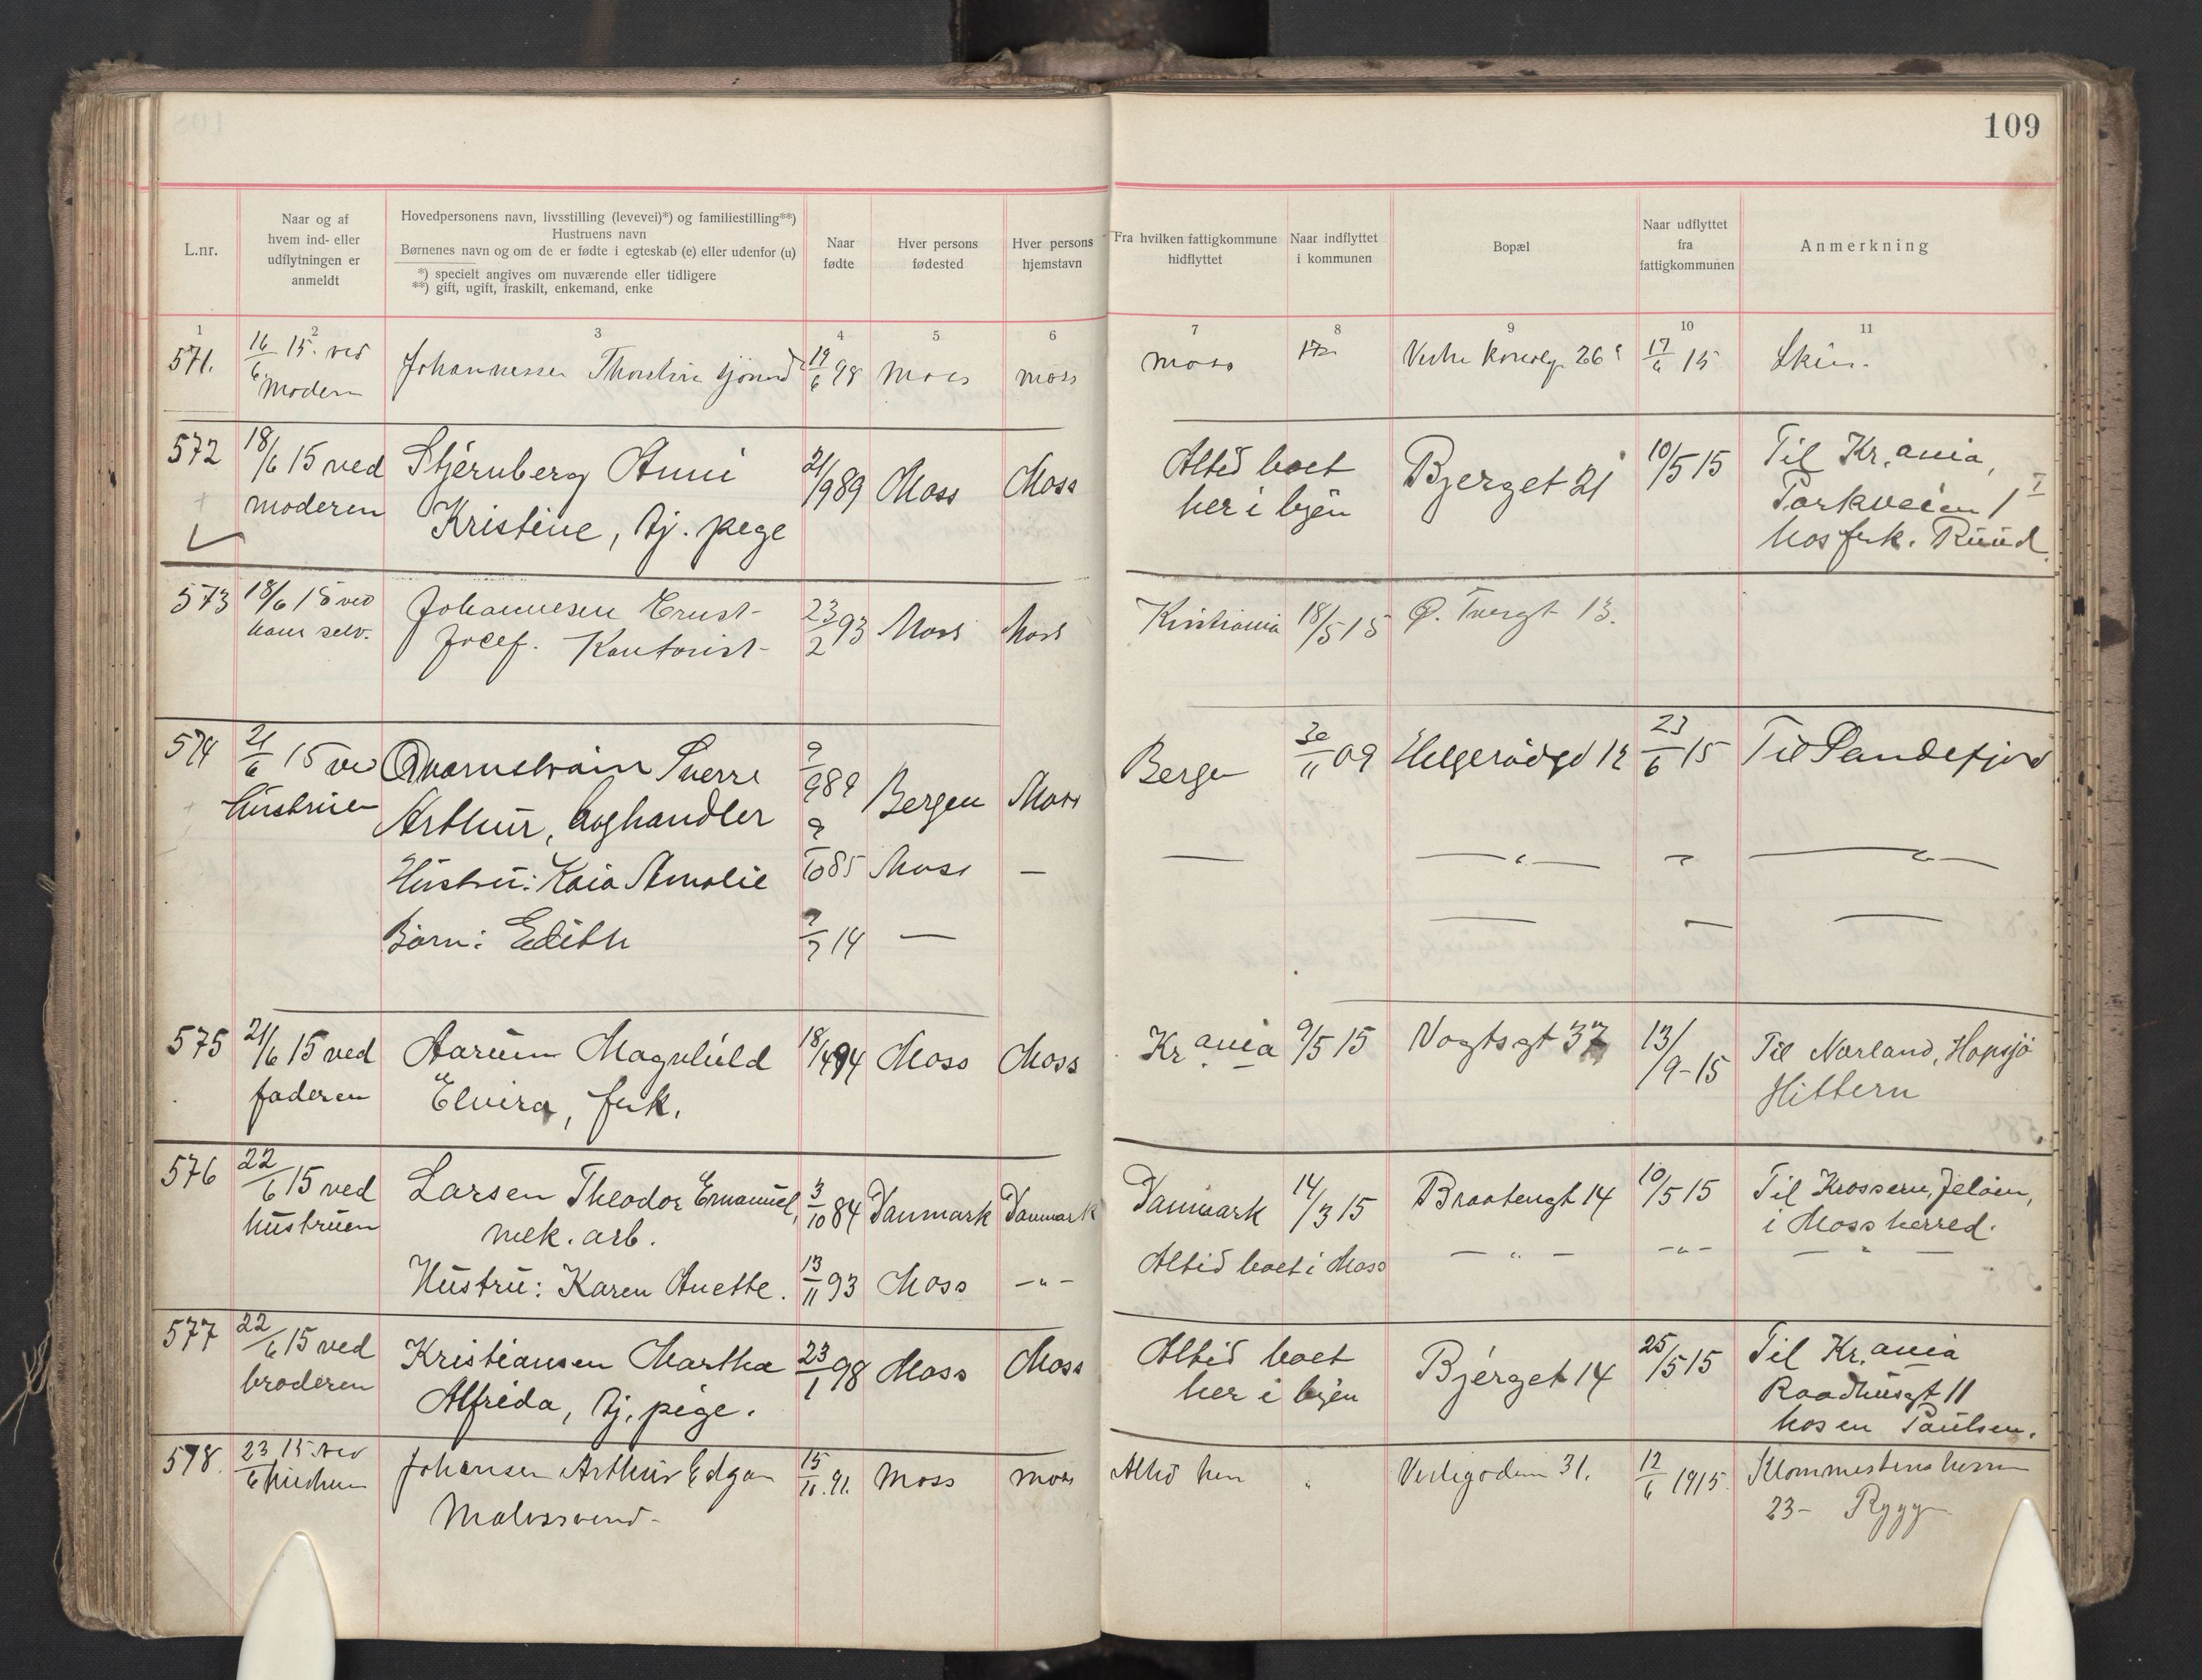 109
L.nr.
Naar og af
hvem ind- eller
udflytningen er
anmeldt
Hovedpersonens navn, livsstilling (levevei)*) og familiestilling**)
Hustruens navn
Børnenes navn og om de er fødte i egteskab (e) eller udenfor (u)
*) specielt angives om nuværende eller tidligere
**) gift, ugift, fraskilt, enkemand, enke
Naar
fødte
Hver persons
fødested
Hver persons
hjemstavn
Fra hvilken fattigkommune
hidflyttet
Naar indflyttet
i kommunen
Bopæl
Naar udflyttet
fra
fattigkommunen
Anmerkning
1 2 3 4 5 6 7 8 9 10 11
571. 16/6 15. ved Johannessen 19/6 98 Moss Moss Moss 26 17/6 15 Skien.
Modern
572 18/6 15 ved Stjernberg Anni 21/9 89 Moss Moss Altid boet Bjerget 21 10/5 15 Til Kr.ania,
moderen Kristine, tj. pege her i byen Parkveien 1 I
hos frk. Ruud
573 18/6 15 ved Johannesen Ernst 23/2 93 Moss Moss Kristiania 18/5 15 Ø. Tvergt 13.
ham selv. Josef. Kontorist
574 21/6 15 ved Sverre 9/9 89 Bergen Moss Bergen 30/11 09 Helgerødgd 12 23/6 15 Til Sandefjord
Hustruen Arthur, handler
Hustru: Kaia Amalie 9/10 85 Moss — — — " — " — " —
Barn: Edith 7/7 14 — — — —
575 21/6 15 ved Aarum Magnhild 18/4 94 Moss Moss Kr.ania 9/5 15 Vogtsgt 37 13/9-15 Til Norland, Hopsjø
faderen Elvira, frk. Hittern
576 22/6 15 ved Larsen Theodor Emanuel, 3/10 84 Danmark Danmark Danmark 14/3 15 Braatengt 14 10/5 15 Til Krossern, Jeløen,
hustruen mek. arb. i Moss herred.
Hustru: Karen Anette. 13/11 93 Moss —"— Altid boet i Moss — " — —"— — " —
577 22/6 15 ved Kristiansen Martha 23/1 98 Moss Moss Altid boet Bjerget 14 25/5 15 Til Kr.ania
broderen Alfrida, tj. pige. her i byen Raadhusgt 11
hos en Paulsen.
578. 23/6 15. ved Johansen Arthur Edgar 15/11. 91. Moss Moss Altid her " 31. 12/6 1915.
Malersvend 23- Rygge